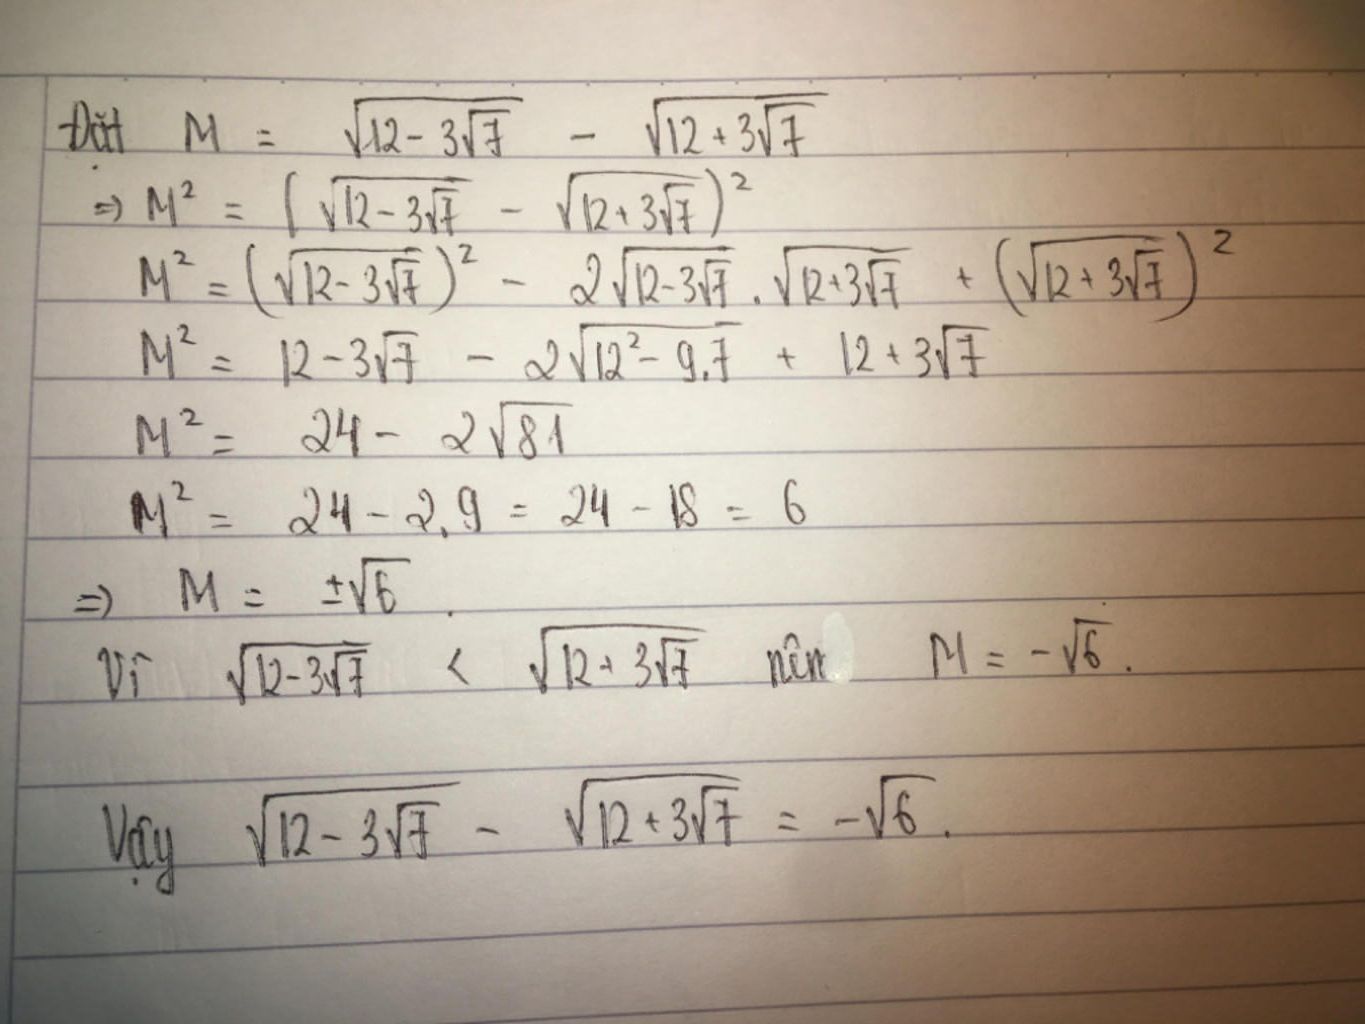 Đặt M = √(12 - 3√7) - √(12 + 3√7)
⇒ M² = (√(12 - 3√7) - √(12 + 3√7))²
M² = (√(12 - 3√7))² - 2√(12 - 3√7) . √(12 + 3√7) + (√(12 + 3√7))²
M² = 12 - 3√7 - 2√(12² - 9.7) + 12 + 3√7
M² = 24 - 2√81
M² = 24 - 2.9 = 24 - 18 = 6
⇒ M = ±√6.
Vì √(12 - 3√7) < √(12 + 3√7) nên M = -√6.
Vậy √(12 - 3√7) - √(12 + 3√7) = -√6.